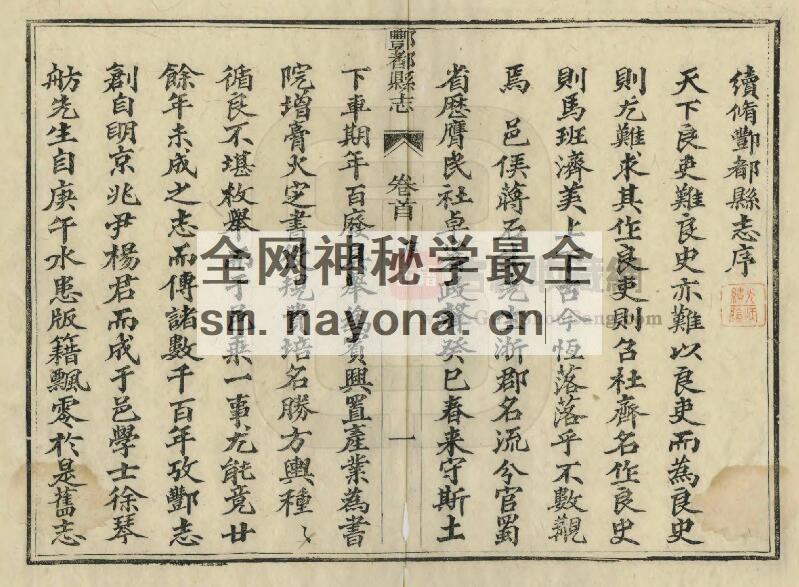 續脩酆都縣志序
天下良吏難良史亦難以良吏而為良史
則尤難求其作良吏則召杜齊名作良史
則馬班濟美上下古今恆落落乎不數覯
焉 邑侯蔣 浙郡名流分官蜀
省歷膺民社卓 政聲癸巳春来守斯土
酆都縣志
卷首
一
下車期年百廢 舉 賓興置產業為書
院增膏火定書 培名勝方輿種〻
循良不堪枚舉 乘一事尤能竟廿
餘年未成之志而傳諸數千百年攷酆志
創自明京兆尹楊君而成于邑學士徐琴
舫先生自庚午水患版籍飄零於是舊志
全网神秘学最全
sm. nayona. cn